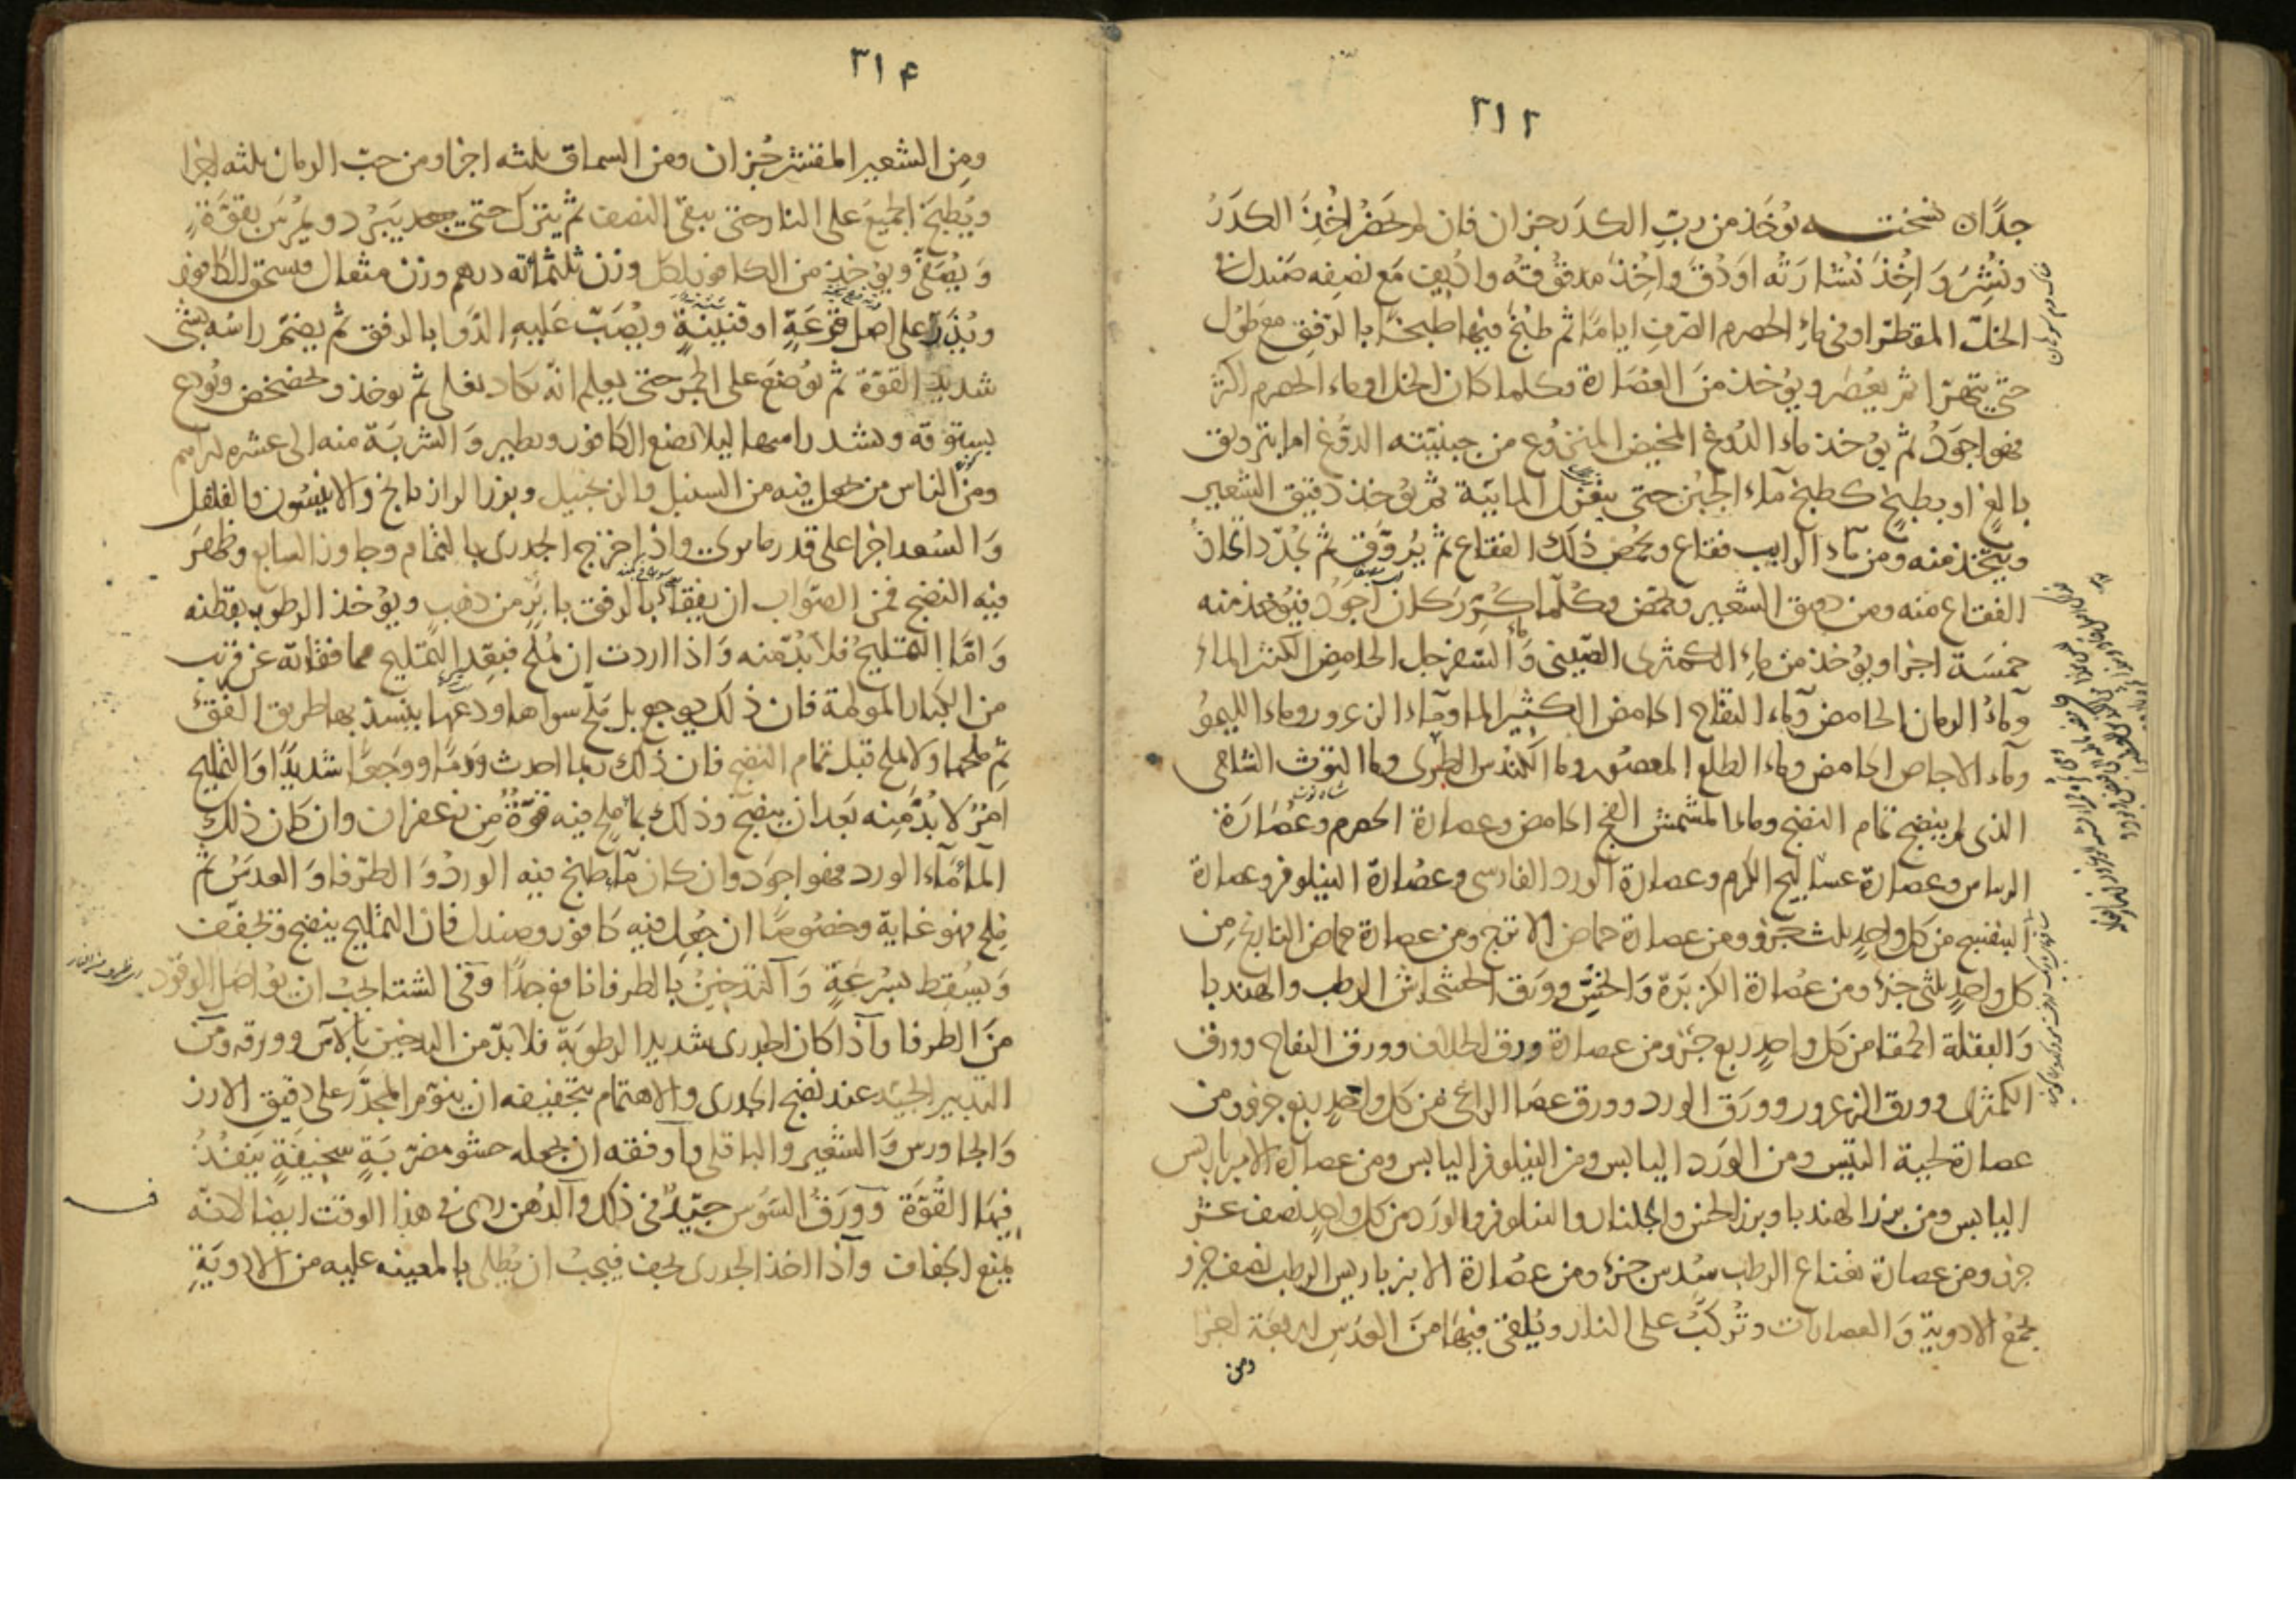 ٣١٢
جدًا ه نسخته يؤخذ من ربّ الكدر جزان فان لم يحضر اُخِذَ الكدَرُ
ونُشِرَ وَاُخِذَ نُشارَتُه اودُقَّ واُخِذَ مدقوقهُ واُنقِعَ مَع نصفِه صَندل
الخلّ المقطّر او فى ماءِ الحصرم الصّرف اياما ثم طبخ فيها طبخًا بالرّفق مع طول
حتى يتهرّا ثم يعُصَر ويؤخذ منَ العُصَارة وكلما كان الخل او ماء الحصرم اكثر
فهوا جوَدُ ثم يؤخذ ماء الدُوغ المخيض المنزوع من جبنيّته الدوغ اما بترويق
بالغٍ او بطبخٍ كطبخ مآء الجُبن حتى ينعزل المائيّة ثم يؤخذ دقيق الشعير
ويتّخذ منه ومن مآء الرايب فقاع ويحمُض ذلك الفقاع ثم يُروَّق ثم يُجدّد اتخاذُ
الفقاع منه ومن دقيق الشعير ويحمض وكُلّما كُرِّرَ كان اجوَدُ فيُؤخذ منه
خمسَة اجزا ويؤخذ من ماءِ الكمثرى الصّينى وَالسّفرجل الحامِضِ الكثير الماء
وماءُ الرمان الحامض وماء التفاح الحامض الكثير الما وماء الزعرور وماء الليمُو
وماء الاجاص الحامض وماء الطلع المعصُور وما الكُندُس الطرى وما التوث الشامى
الذى لم ينضج تمام النضج وماء المشمش الفج الحامض وعصارة الحصرم وعُصَارَة
الريباس وعصارة عساليج الكرم وعصارة الورد الفارسى وعُصَارة النيلوفر وعصارة
البنفسج من كل واحدٍ ثلث جزؤ ومن عصارة حماض الاترج ومن عصارة حماض النارنج مِن
كل واحدٍ ثلثى جزء ومن عصارة الكزبَرة وَالخسّ وورَق الخشخاش الرطب والهندبا
وَالبقلة الحمقا من كل واحدٍ ربع جزؤ ومن عصارة ورق الخلاف وورق التفاح وورق
الكمثرى وورق الزعرور وورَق الورد وورق عصا الراعى من كل واحدٍ ربع جزؤ ومن
عصارة لحية التيس ومن الورَد اليابس ومن النيلوفر اليابس ومن عصارة الامبرباريس
اليابس ومن بزر الهندبا وبزر الخس والجلنار والنيلوفر والورَد من كل واحدٍ نصف عشر
جزؤ ومن عصارة نعناع الرطب سُدس جزء ومن عصارة الانبرباريس الرطب نصف جزؤ
يجمَعُ الادوية وَالعصارات وتُركّبُ على النار ويُلقى فيهَا منَ العدَسِ اربعَة اجزا
ومن
٣١۴
ومن الشعير المقشر جُزان ومن السماق ثلثه اجزا ومن حبّ الرمان ثلثه اجزا
ويُطبخ الجميعُ على النار حتى يبقى النصف ثم ينزل حتى يبرُد ويمُرَسَ بقوَّةٍ
وَيُصَفّى ويؤخذ من الكافور لكل وزن ثلثمائه درهم وزن مثقال فيسحق الكافور
ويُذرّ على اصل قرعَةٍ او قنينَةٍ ويُصَبّ عَليهِ الدّوا بالرفق ثم يضمّ راسُه بشى
شديدِ القوّة ثم يوُضعَ على الجمر حتى يعلم انّه يكاد يغلى ثم يوخذ ويخضخض ويُودع
بستوقه ويشد راسها ليلا يضع الكافور ويطير وَالشربَة منه الى عشره دراهم
ومن الناس من يجعل فيه من السنبل والزنجبيل وبزر الرازيانج وَالانيسُون والفلفل
وَالسُعد اجزا على قدر ما يرى واذا اخرج الجدرى بالتمام وجاوز السابع وظهرَ
فيه النضج فمن الصّوَاب ان يفقاء بالرفق بابَرٍ من ذهبٍ ويؤخذ الرطوبه بقطنه
وَامّا التمليحُ فلا بُدّ منه وَاذا اردت ان تُملّح فبعّدِ التمليح مما فقاته عن قريب
من الكبار المولمة فان ذلك يوجع بل ملّح سواها ودعَها ينسدّ بها طريق الفقؤ
ثم ملحها ولا تملح قبل تمام النضج فان ذلك ربما احدث ورَمًا ووجَعًا شديدًا وَالتمليح
امرٌ لا بُدّ مِنه بَعد ان ينضج وذلك بماءٍ ملح فيه قوّةٌ مِن زعفران وان كان ذلك
الماءُ مآء الورد فهو اجوَد وان كان ماءً طبخ فيه الوردُ وَالطرفا وَالعدسُ ثم
مُلح فهو غاية وخصُوصًا ان جُعِلَ فيه كافور وصندل فان التمليح ينضج ويجفّف
وَيسُقِط بسُرعَةٍ وَالتدخينُ بالطرفا نافع جدًا وفى الشتا يجبُ ان يوُاصل الوقود
منَ الطرفا واذا كان الجدرى شديد الرطوبَة فلا بدّ من التدخين بالآس وورقه ومن
التدبير الجيّد عند نضج الجدرى والاهتمام بتجفيفه ان ينوّم المجدَّر على دقيق الارز
وَالجاورس وَالشعير والباقلى واَوفقه ان يجعله حشو مضرّبَةٍ سخيفةٍ يَنفُذُ
فيها القُوّة وَورَقُ السّوَس جيّدٌ فى ذلك وَالدُهن ردى فى هذا الوقت ايضا لانه
يمنع الجفاف واذا اخذ الجدرى يجف فيجبُ ان يُطلى بالمعينه عليه من الادويَةِ